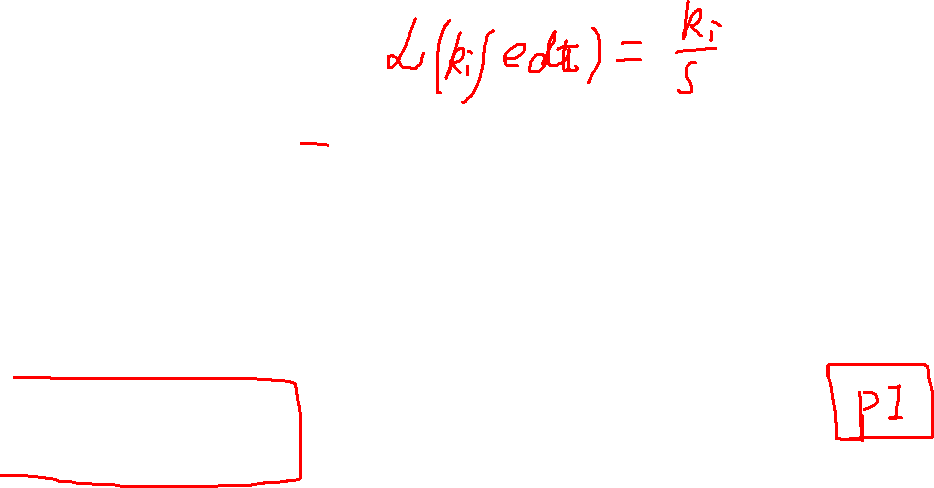 L(ki∫edt) = ki/s
PI